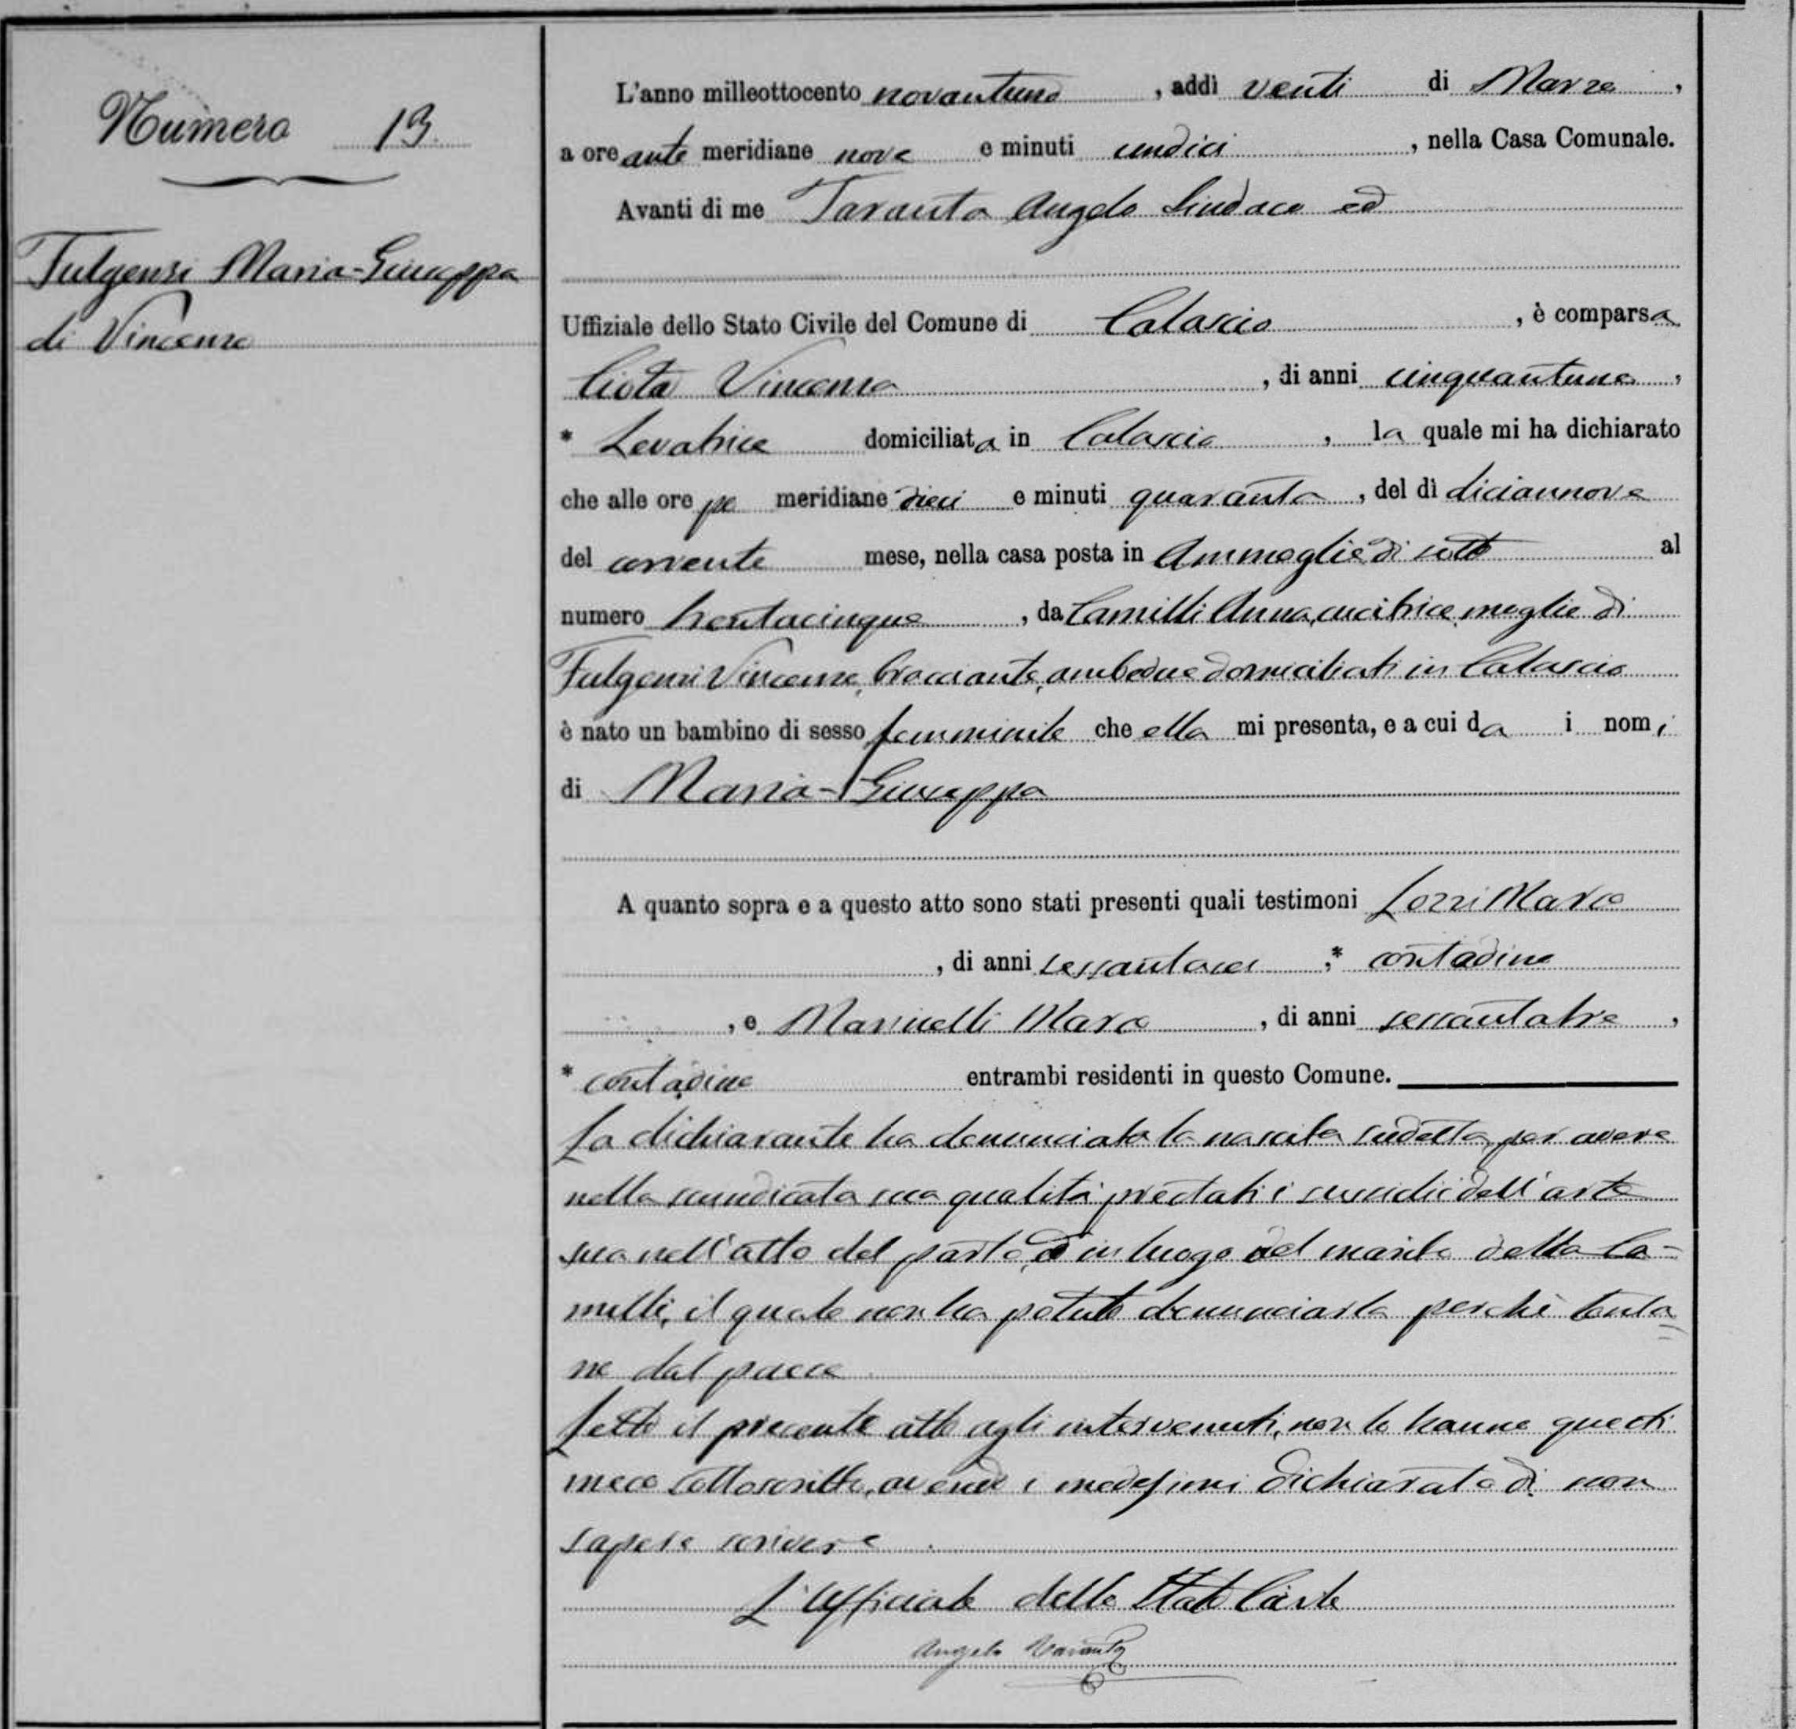 Numero 13.
Fulgensi Maria-Giuseppa
di Vincenzo
L'anno milleottocento novantuno, addì venti di Marzo,
a ore ante meridiane nove e minuti undici, nella Casa Comunale.
Avanti di me Taranta Angelo Sindaco ed
Uffiziale dello Stato Civile del Comune di Calascio, è comparsa
Ciota Vincenza, di anni cinquantuno,
* Levatrice domiciliata in Calascio, la quale mi ha dichiarato
che alle ore po meridiane dieci e minuti quaranta, del dì diciannove
del corrente mese, nella casa posta in Ammoglie di sotto al
numero trentacinque, da Camilli Anna, cucitrice, moglie di
Fulgensi Vincenzo, bracciante, ambedue domiciliati in Calascio
è nato un bambino di sesso femminile che ella mi presenta, e a cui da i nomi
di Maria-Giuseppa
A quanto sopra e a questo atto sono stati presenti quali testimoni Lozzi Marco
, di anni sessantasei, * contadino
, e Marinelli Marco, di anni sessantatre,
* contadino entrambi residenti in questo Comune.
La dichiarante ha denunciato la nascita sudetta, per avere
nella sundicata sua qualità prestati i sussidii dell'arte
sua nell'atto del parto, ed in luogo del marito della Ca-
milli, il quale non ha potuto denunciarla perchè lonta
no dal paese
Letto il presente atto agli intervenuti, non lo hanno questi
meco sottoscritto, avendo i medesimi dichiarato di non
sapere scrivere.
L'Ufficiale dello Stato Civile
Angelo Taranta